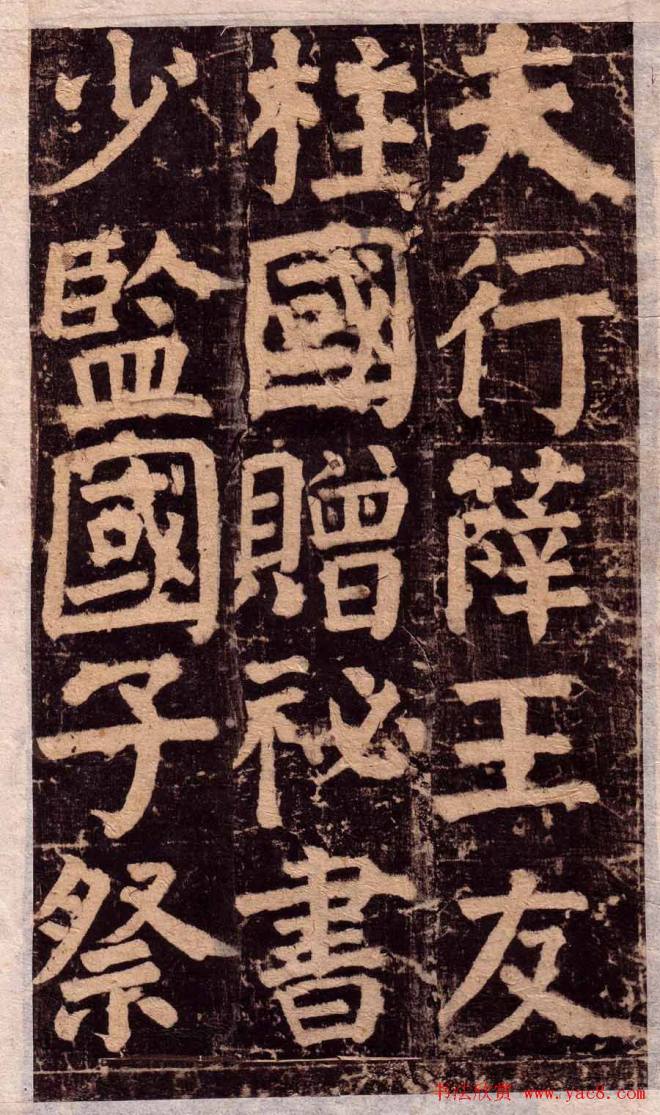 夫行薛王友
柱國贈祕書
少監國子祭
书法欣赏 www.yac8.com